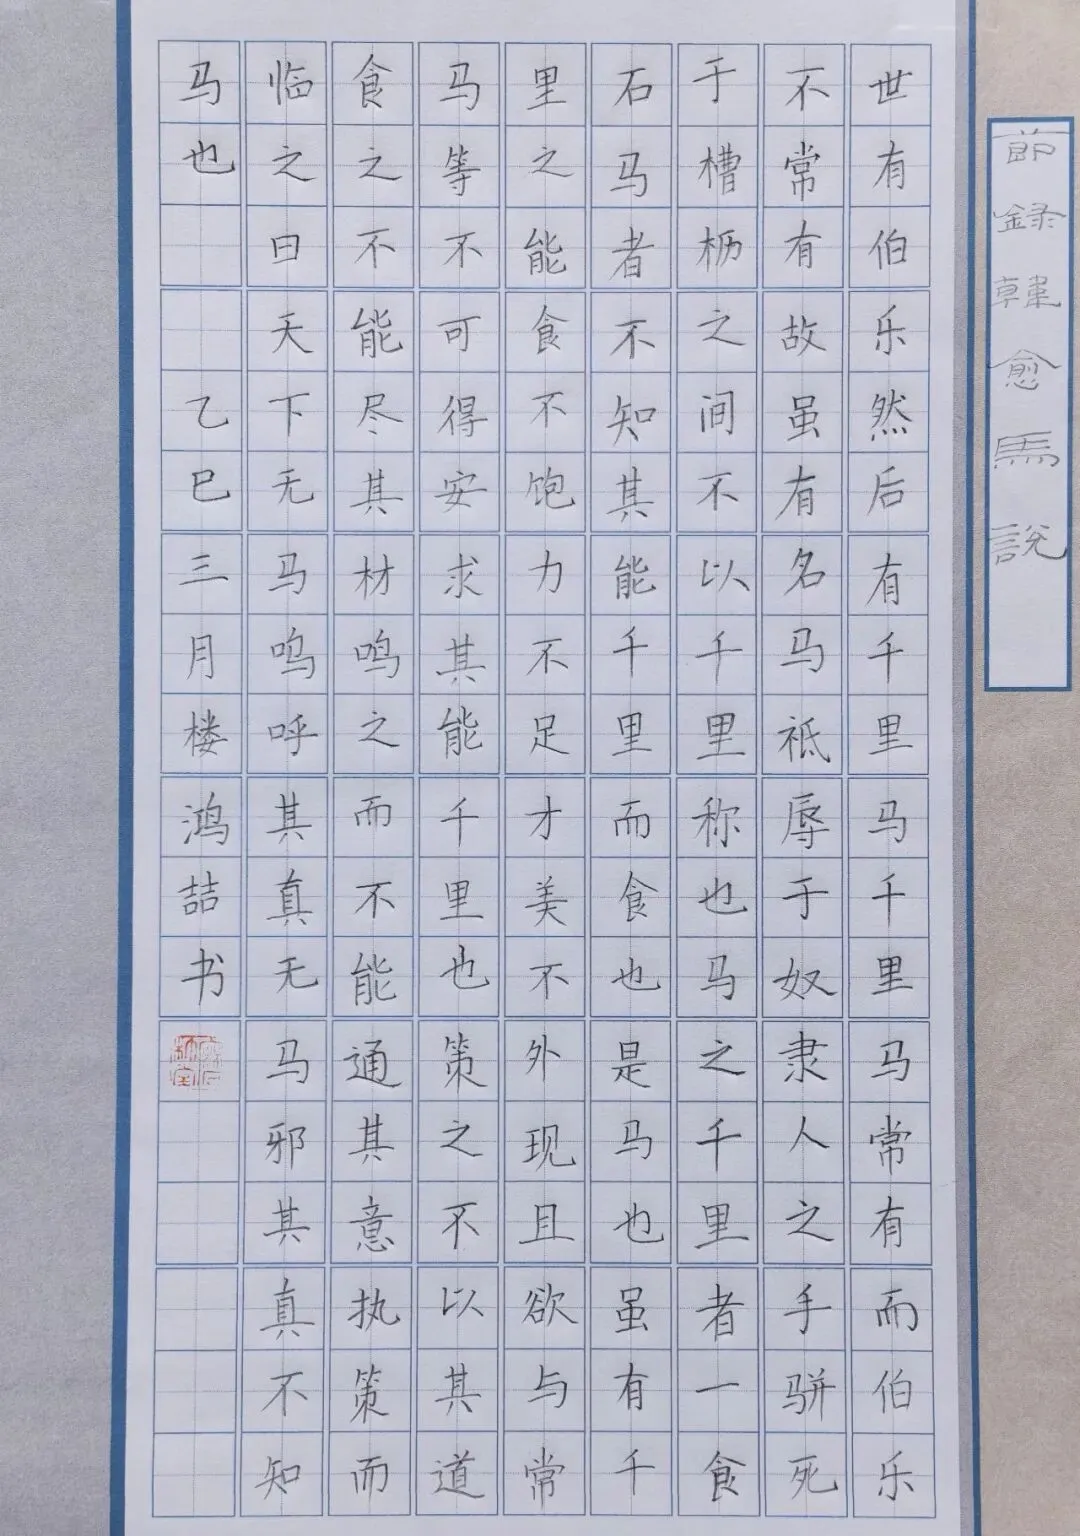 節録韓愈馬説
世有伯乐然后有千里马千里马常有而伯乐
不常有故虽有名马祗辱于奴隶人之手骈死
于槽枥之间不以千里称也马之千里者一食
石马者不知其能千里而食也是马也虽有千
里之能食不饱力不足才美不外现且欲与常
马等不可得安求其能千里也策之不以其道
食之不能尽其材鸣之而不能通其意执策而
临之曰天下无马呜呼其真无马邪其真不知
马也 乙巳三月楼鸿喆书